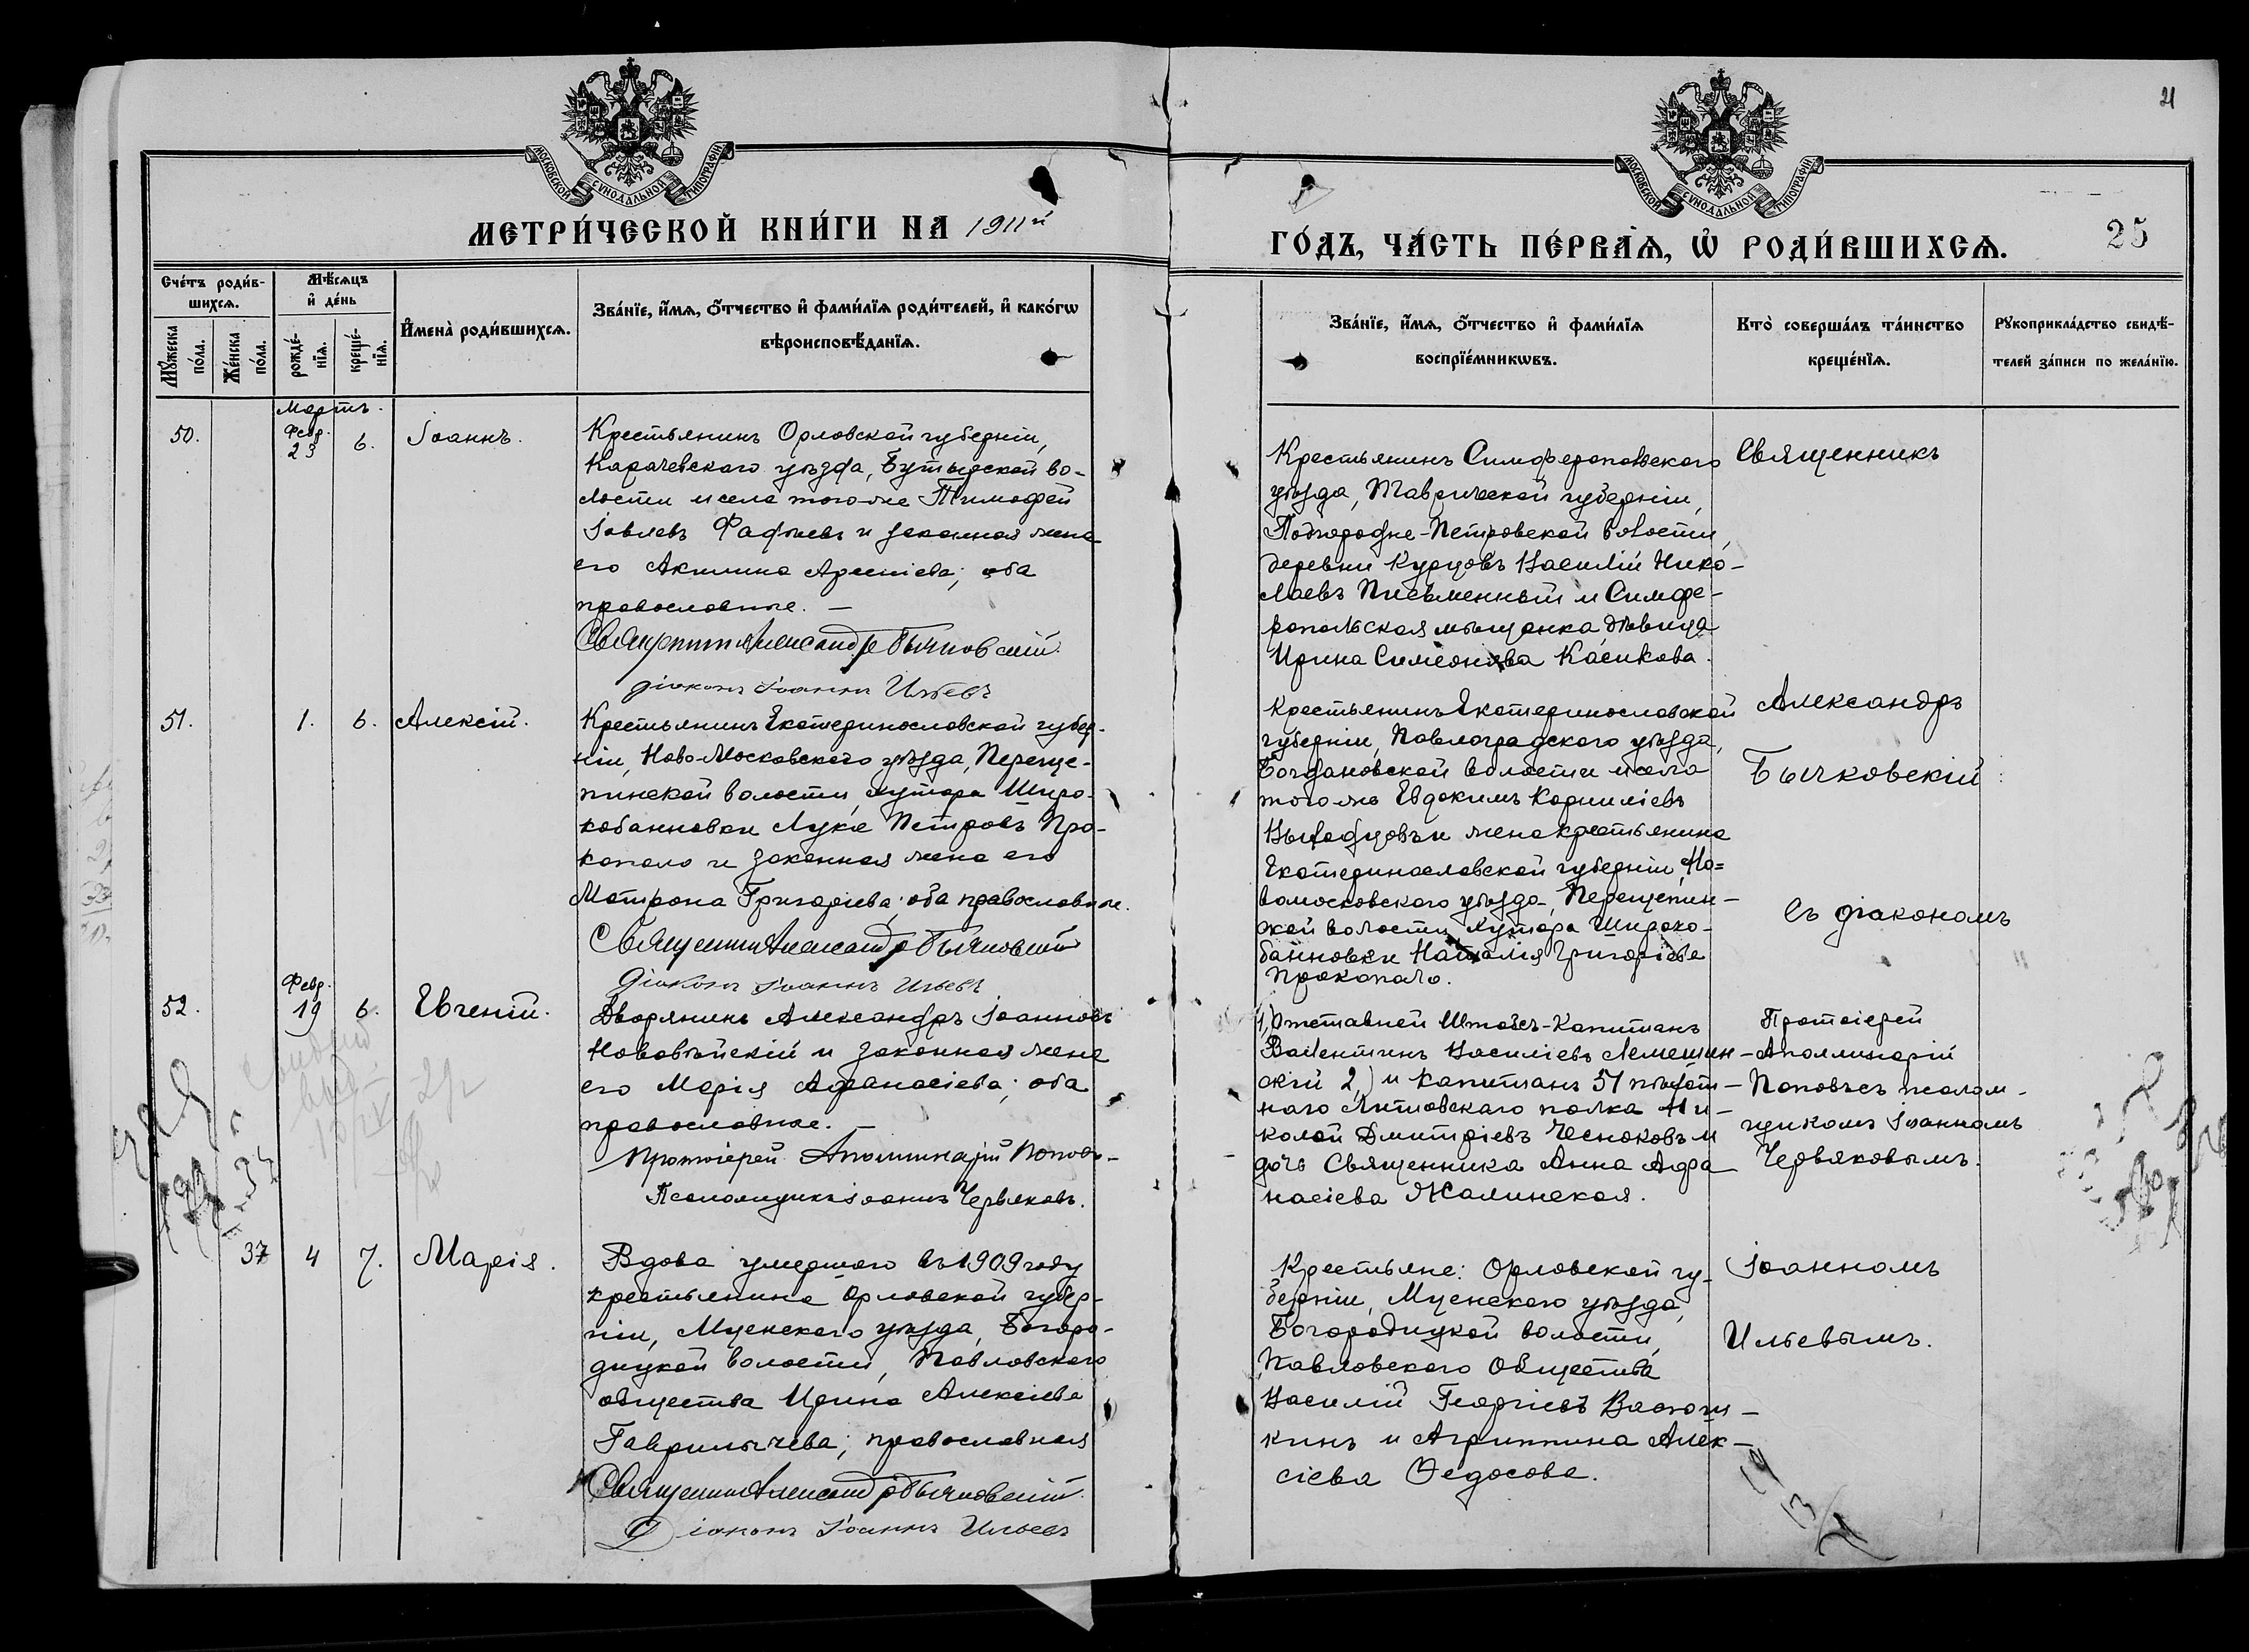 МОСКОВСКОЙ СѴНОДАЛЬНОЙ ТИПОГРАФІИ
МЕТРИ́ЧЕСКОЙ КНИ́ГИ НА 1911й
Сче́тъ роди́в-
шихсѧ.
Мꙋ́жеска
по́ла.
Же́нска
по́ла.
Мѣ́сѧцъ
и҆ де́нь
рожде́-
нїѧ.
креще́-
нїѧ.
И҆мена̀ роди́вшихсѧ.
Зва́нїе, и҆́мѧ, ѻ҆́тчество и҆ фами́лїѧ роди́телей, и҆ како́гѡ
вѣроисповѣ́данїѧ.
Мартъ.
50.
Февр.
23
6.
Іоаннъ.
Крестьянинъ Орловской губерніи,
Карачевскаго уѣзда, Бутырской во-
лости и села того-же Тимофей
Іовлевъ Фадѣевъ и законная жена
его Акилина Арсеніева; оба
православные. —
Священникъ Александръ Бычковскій.
Діаконъ Іоаннъ Ильевъ
51.
1.
6.
Алексій.
Крестьянинъ Екатеринославской губер-
ніи, Ново-Московскаго уѣзда, Переще-
пинской волости, хутора Широ-
кобанновки Лука Петровъ Про-
копало и законная жена его
Матрона Григоріева; оба православные.
Священникъ Александръ Бычковскій
Діаконъ Іоаннъ Ильевъ
52.
Февр.
19
6.
Евгеній.
Дворянинъ Александръ Іоанновъ
Нововѣйскій и законная жена
его Марія Афанасіева; оба
православные. —
Протоіерей Аполлинарій Поповъ-
Псаломщикъ Іоаннъ Червяковъ.
37
4
7.
Марія.
Вдова умершаго въ 1909 году
крестьянина Орловской губер-
ніи, Мценскаго уѣзда, Богоро-
дицкой волости, Павловскаго
общества Ирина Алексіева
Гаврилычева; православная
Священникъ Александръ Бычковскій.
Діаконъ Іоаннъ Ильевъ
21
МОСКОВСКОЙ СѴНОДАЛЬНОЙ ТИПОГРАФІИ
ГО́ДЪ, ЧА́СТЬ ПЕ́РВАѦ, Ѡ҆ РОДИ́ВШИХСѦ.
25
Зва́нїе, и҆́мѧ, ѻ҆́тчество и҆ фами́лїѧ
воспрїе́мникѡвъ.
Кто̀ соверша́лъ та́инство
креще́нїѧ.
Рꙋкоприкла́дство свидѣ́-
телей за́писи по жела́нїю.
Крестьянинъ Симферопольскаго
уѣзда, Таврической губерніи,
Подгородне-Петровской волости,
деревни Курцовъ Василій Нико-
лаевъ Письменный и Симфе-
ропольская мѣщанка, дѣвица
Ирина Симеонова Касикова.
Священникъ
Крестьянинъ Екатеринославской
губерніи, Павлоградскаго уѣзда,
Богдановской волости и села
того же Евдокимъ Корниліевъ
и жена крестьянина
Екатеринославской губерніи, Но=
вомосковскаго уѣзда, Перещепин-
ской волости, хутора Широко-
банновки Наталія Григоріева
Прокопало.
Александръ
Бычковскій
съ діакономъ
1) Отставной Штабсъ-Капитанъ
Валентинъ Василіевъ Лемешин-
скій 2) и капитанъ 51 пѣхот-
наго Литовскаго полка Ни-
колай Дмитріевъ Чесноковъ и
дочь Священника Анна Афа-
насіева Жалинская.
Протоіерей
Аполлинарій
Поповъ съ псалом-
щикомъ Іоанномъ
Червяковымъ.
Крестьяне: Орловской гу-
берніи, Мценскаго уѣзда,
Богородицкой волости,
Павловскаго Общества
Василій Георгіевъ
и Агриппина Алек-
сіева Ѳедосова.
Іоанномъ
Ильевымъ.